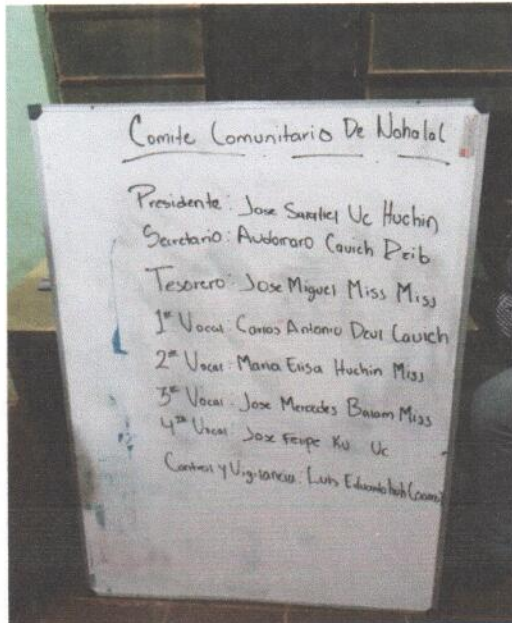 Comite Comunitario De Nohalal
Presidente: Jose Uc Huchin
Secretario: Audomaro Cauich Dzib
Tesorero: Jose Miguel Miss Miss
1er Vocal: Carlos Antonio Dzul Cauich
2do Vocal: Maria Elisa Huchin Miss
3er Vocal: Jose Mercedes Balam Miss
4to Vocal: Jose Felipe Ku Uc
Control y Vigilancia: Luis Eduardo